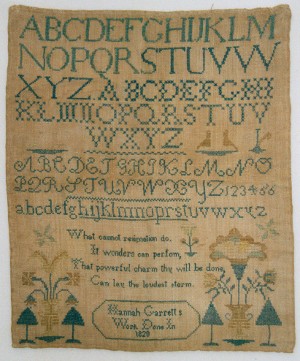 ABCDEFGHIJKLM
NOPQRSTUVW
XYZ ABCDEFGHI
KLMNOPQRSTUV
WXYZ
ABCDEFGHIKLMNO
PQRSTUVWXYZ123456
abcdefghijklmnopqrstuvwxyz
What cannot resignation do,
It wonders can perform,
That powerful charm thy will be done,
Can lay the loudest storm.
Hannah Garrett's
Work Done In
1820